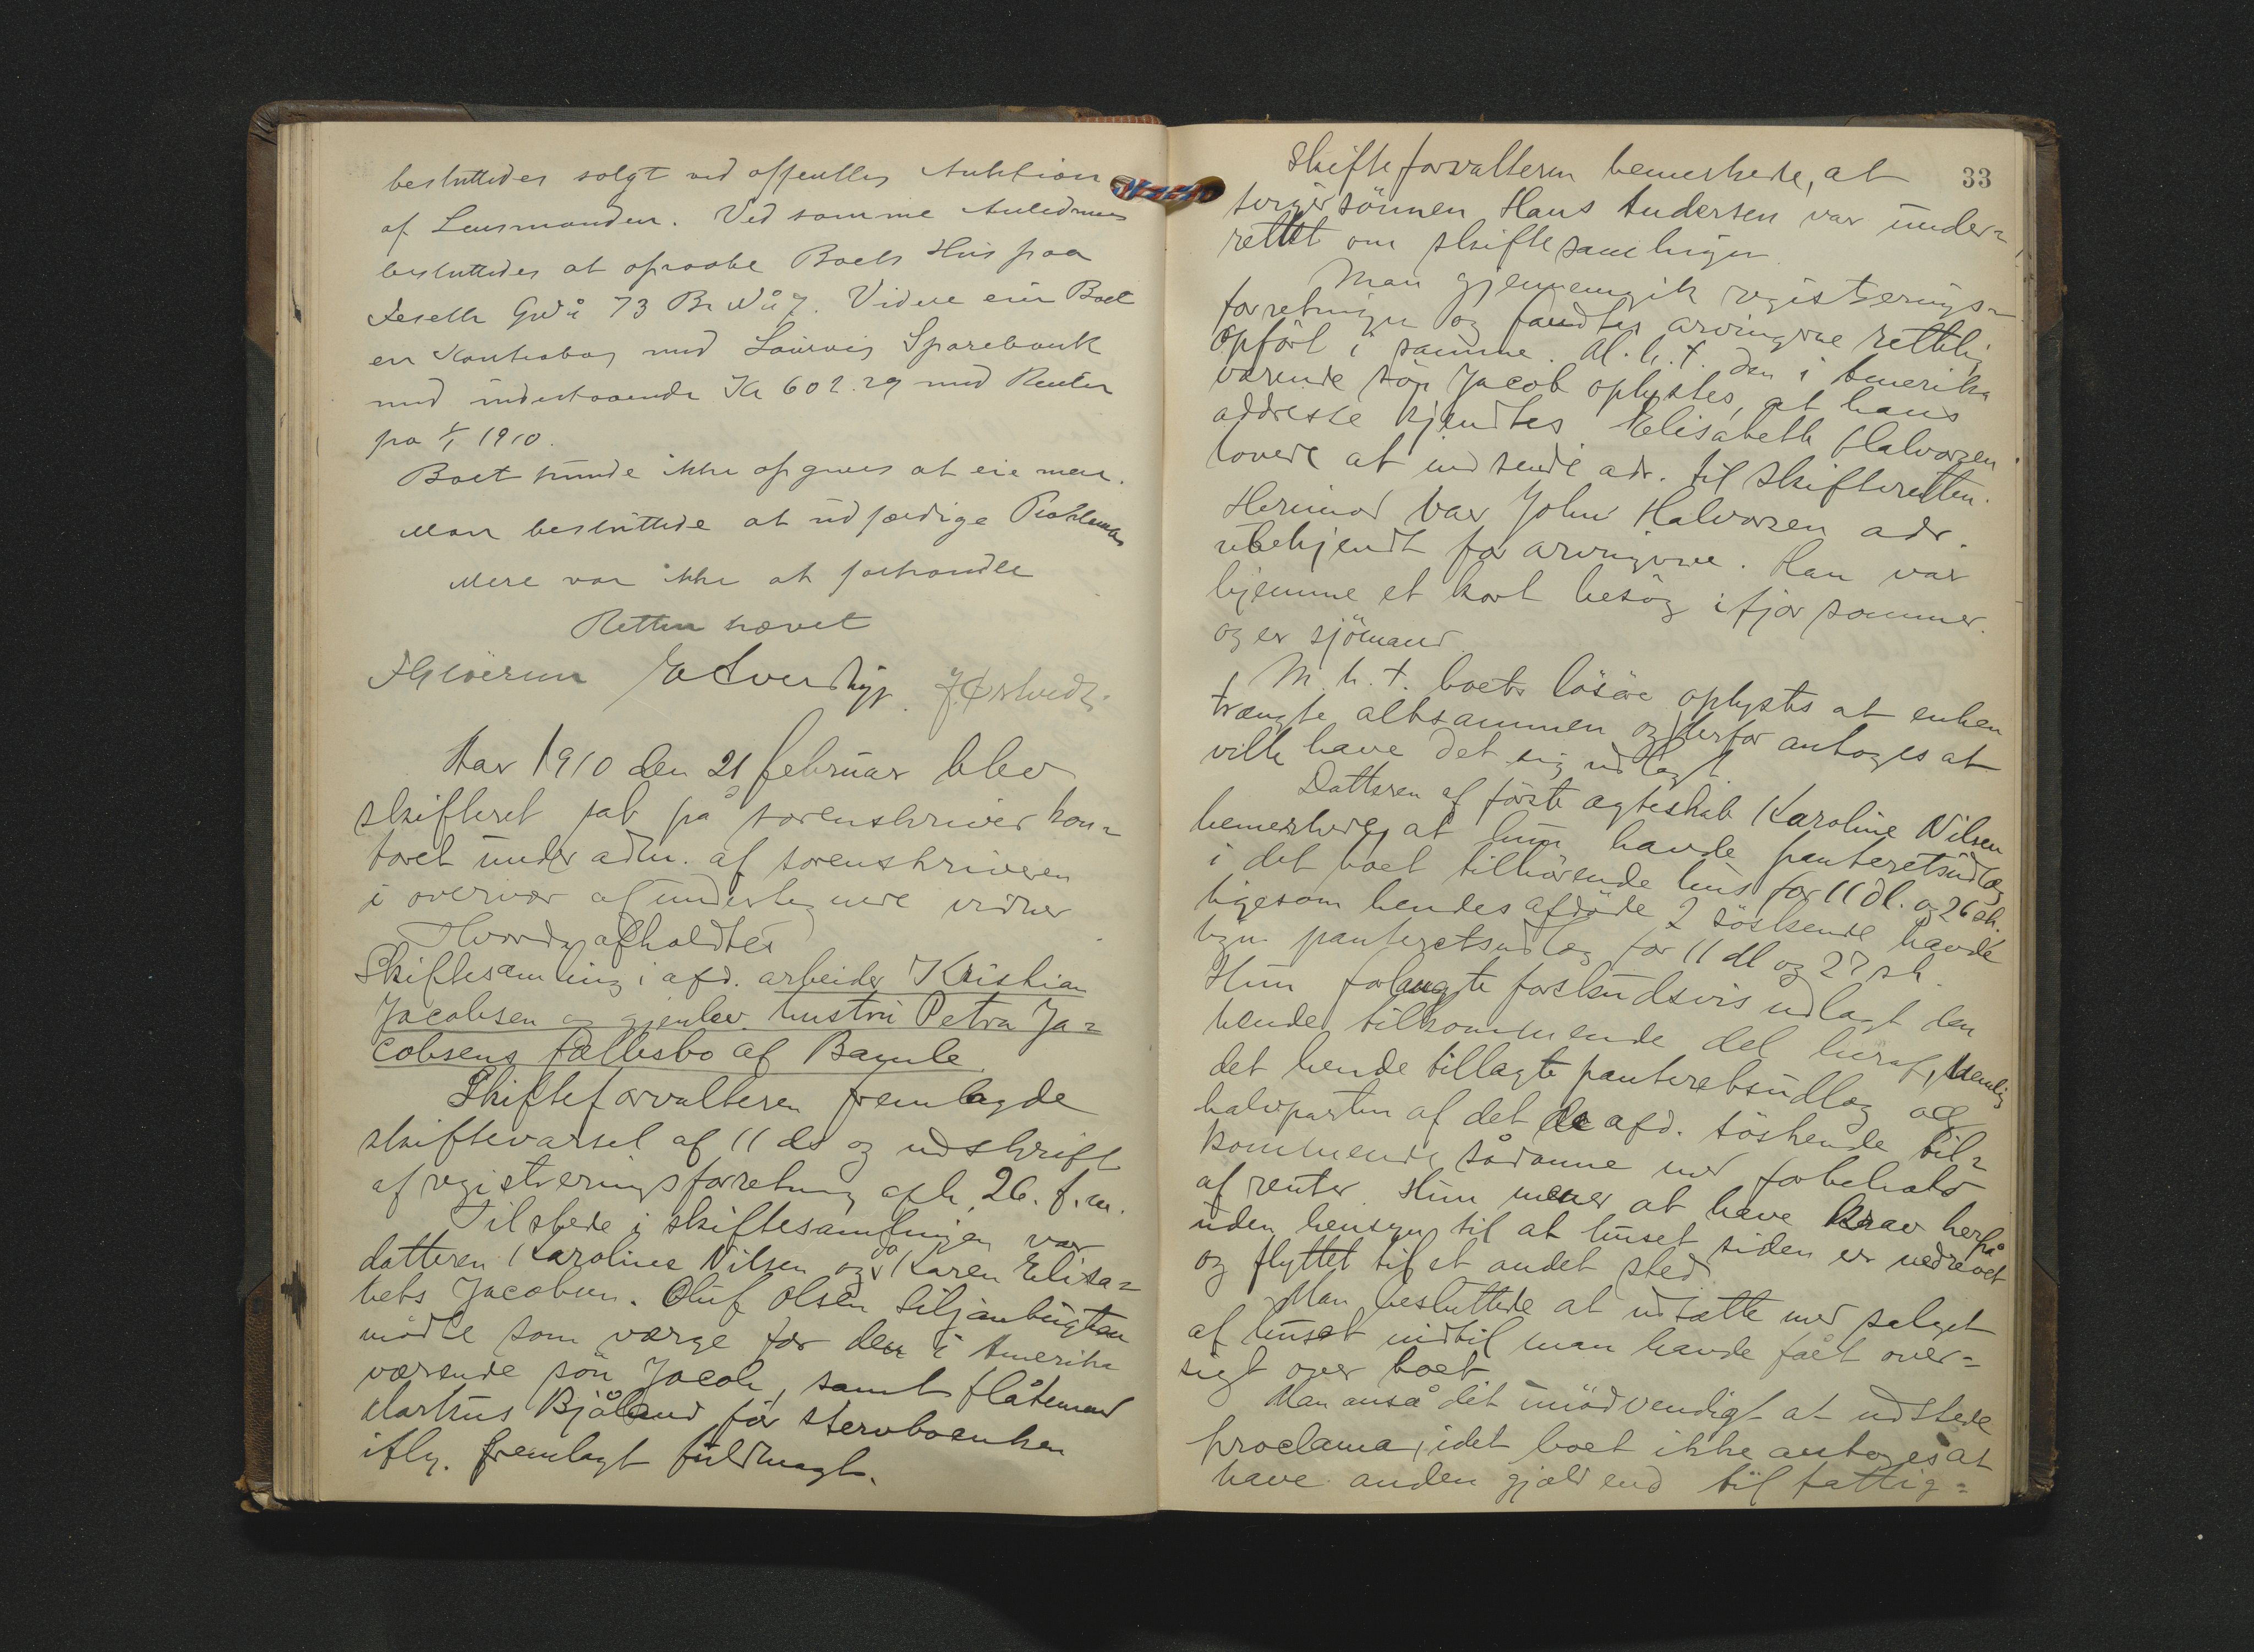 besluttedes solgt ved offentlig Auktion
af Lensmanden. Ved samme Anledning
besluttedes at opraabe Boets Hus paa
Grd № 73 Br № 7. Videre eier Boet
en Kontrabog med Laurvig Sparebank
med indestaaende Kr 602.29 med Renter
fra 1/1 1910.
Boet kunde ikke opgives at eie mere.
Man besluttede at udfærdige Proklama
Mere var ikke at forhandle
Retten hævet
Aar 1910 den 21 februar blev
skifteret sat på sorenskriverkon=
toret under adm. af sorenskriveren
i overvær af undertegnede vidner
Hvorda afholdtes
Skiftesamling i afd. arbeider Kristian
Jacobsen og gjenlev. hustru Petra Ja=
cobsens fællesbo af Bamle.
Skifteforvalteren fremlagde
skiftevarsel af 11 ds og udskrift
af registreringsforretning afh. 26. f.m.
Tilstede i skiftesamlingen var
datteren Karoline Nilsen og Karen Elisa=
bets Jacobsen. Oluf Olsen Siljanbugten
mødte som værge for den i Amerika
værende søn Jacob, samt flåtemand
Markus Bjåland for stervboenken
iflg. fremlagt fuldmagt.
33
Skifteforvalteren bemerkede, at
svigersønnen Hans Andersen var under=
rettet om skiftesamlingen
Man gjennemgik registrerings=
forretningen og fandtes arvingerne rettelig
opført i samme. M.h.t. den i Amerika
værende søn Jacob oplystes, at hans
addresse kjendtes. Elisabeth Halvorsen
lovede at indsende adr. til skifteretten.
Herimod var John Halvorsen adr.
ubekjendt for arvingerne. Han var
hjemme et kort besøg ifjor sommer.
og er sjømand.
M.h.t. boets løsøre oplystes at enken
trængte altsammen og derfor antoges at
ville have det sig udlagt.
Datteren af første ægteskab Karoline Nilsen
bemerkede, at hun havde panteretsudlæg
i det boet tilhørende hus for 11 dl. og 26 sk.
ligesom hendes afdøde 2 søskende havde
lign. panteretsudlæg for 11 dl og 27 sk.
Hun forlangte forskudsvis udlagt den
hende tilkommende del heraf, nemlig
det hende tillagte panteretsudlæg og
halvparten af det de afd. søskende til=
kommende sådanne med forbehold
af renter. Hun mener at have krav herpå
uden hensyn til at huset siden er nedrevet
og flyttet til et andet sted.
Man besluttede at udsætte med salget
af huset indtil man havde fået over=
sigt over boet.
Man anså det unødvendigt at udstede
proclama, idet boet ikke antoges at
have anden gjæld end til fattig=